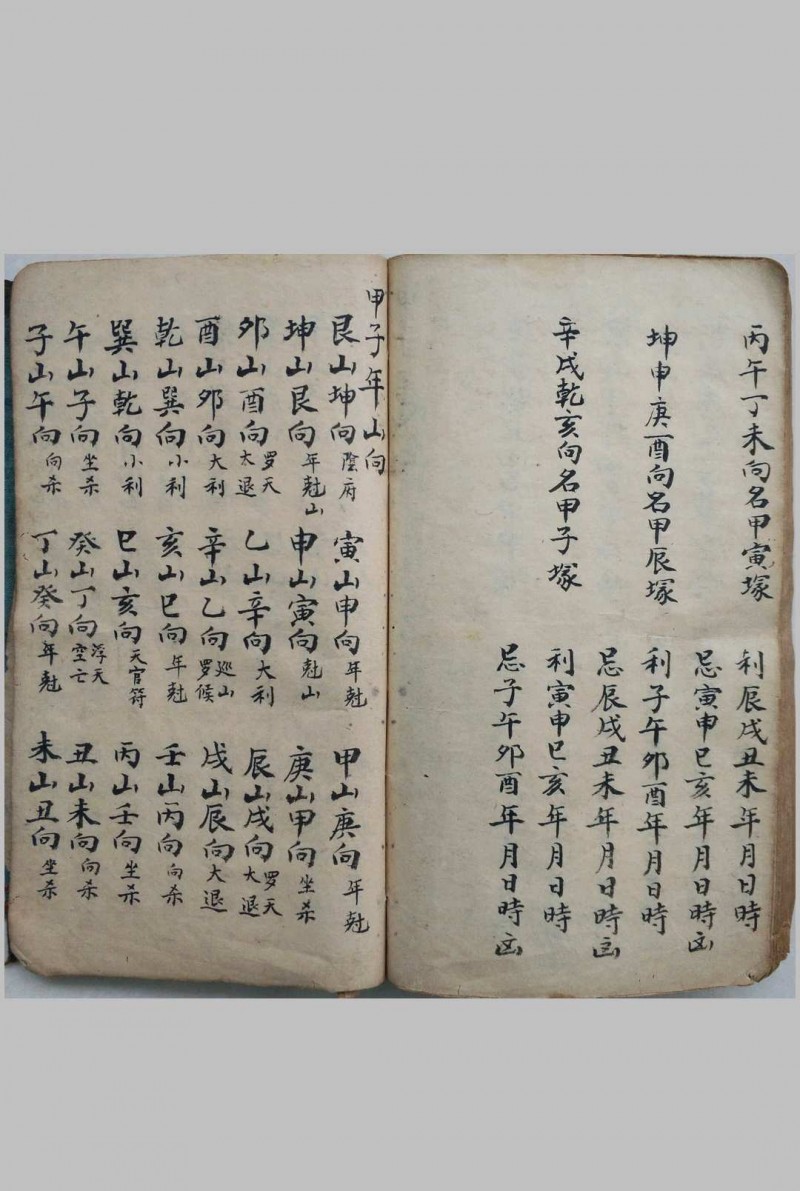 丙午丁未向名甲寅塚
利辰戌丑未年月日時
忌寅申巳亥年月日時凶
坤申庚酉向名甲辰塚
利子午卯酉年月日時
忌辰戌丑未年月日時凶
辛戌乾亥向名甲子塚
利寅申巳亥年月日時
忌子午卯酉年月日時凶
甲子年山向
艮山坤向 陰府 寅山申向 年尅 甲山庚向 年尅
坤山艮向 年尅山 申山寅向 尅山 庚山甲向 坐杀
卯山酉向 罗天太退 乙山辛向 大利 辰山戌向 罗天大退
酉山卯向 大利 辛山乙向 巡山罗候 戌山辰向 大退
乾山巽向 小利 亥山巳向 年尅 壬山丙向 向杀
巽山乾向 小利 巳山亥向 天官符 丙山壬向 坐杀
午山子向 坐杀 癸山丁向 浮天空亡 丑山未向 向杀
子山午向 向杀 丁山癸向 年尅 未山丑向 坐杀